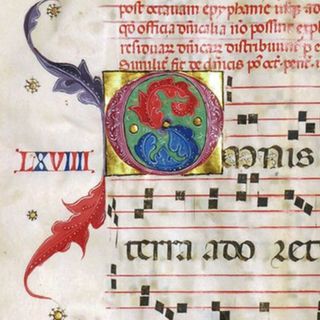 post octavam epyphanie usq; ad
qd officia dnicalia no possint expl
residuar dnicar distribuunt p e
Similiter fit de dnicis po oct. pent.
LXVIIII
OMNIS
terra ado ret